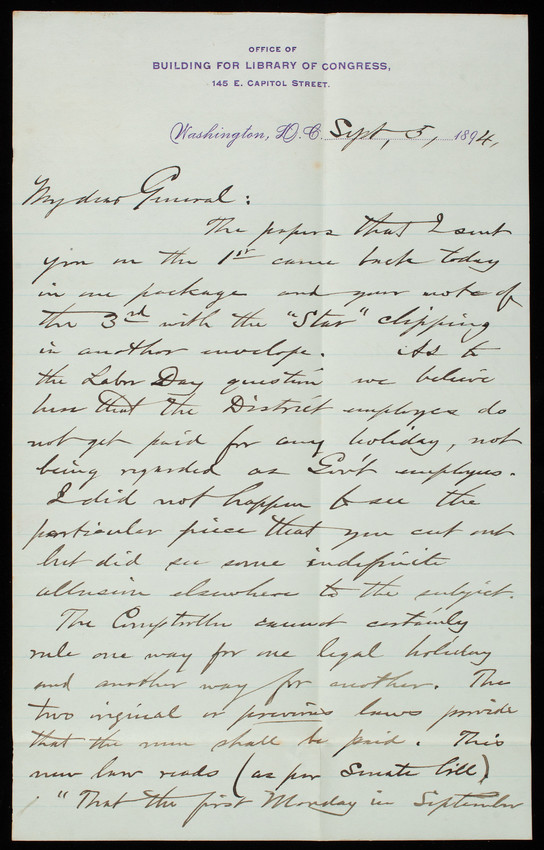 OFFICE OF
BUILDING FOR LIBRARY OF CONGRESS,
145 E. CAPITOL STREET.
Washington, D. C. Sept, 5, 1894,
My dear General:
The papers that I sent
you on the 1st came back today
in one package and your note of
the 3rd with the "Star" clipping
in another envelope. As to
the Labor Day question we believe
here that the District employes do
not get paid for any holiday, not
being regarded as Gov't employes.
I did not happen to see the
particular piece that you cut out
but did see some indefinite
allusion elsewhere to the subject.
The Comptroller cannot certainly
rule one way for one legal holiday
and another way for another. The
two original or previous laws provide
that the men shall be paid. This
new law reads (as per Senate bill)
"That the first Monday in September